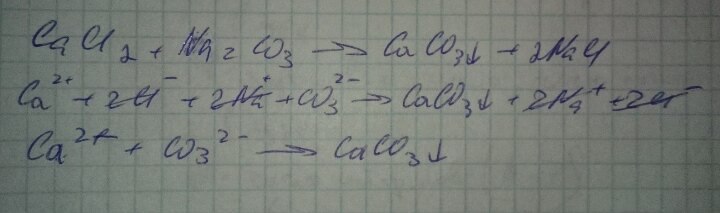 CaCl₂ + Na₂CO₃ → CaCO₃↓ + 2NaCl
Ca²⁺ + 2Cl⁻ + 2Na⁺ + CO₃²⁻ → CaCO₃↓ + 2Na⁺ + 2Cl⁻
Ca²⁺ + CO₃²⁻ → CaCO₃↓